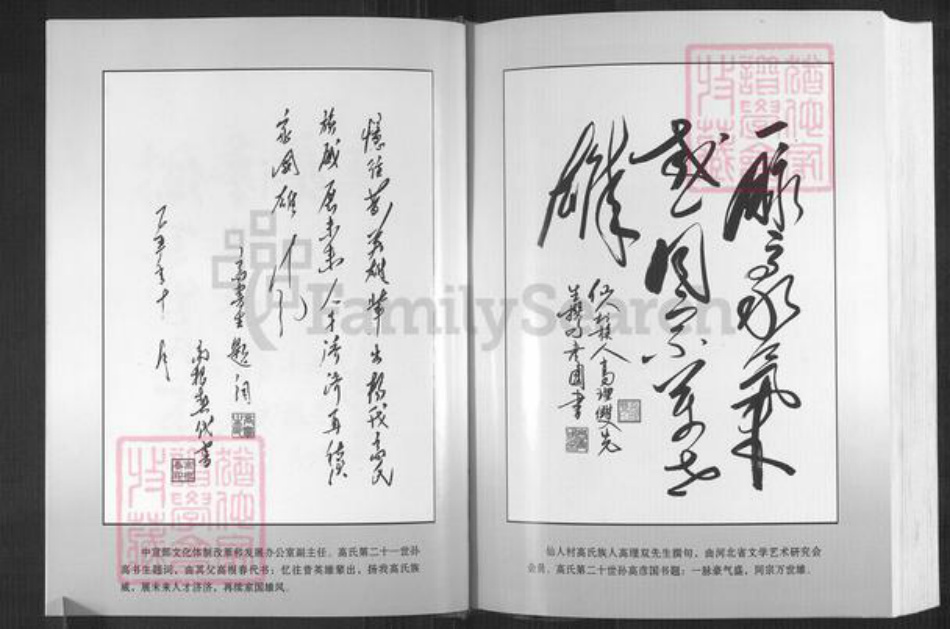 一脉豪气
盛同宗万世
雄
仙人村族人高理双先
生撰句彦国书
仙人村高氏族人高理双先生撰句，由河北省文学艺术研究会
会员、高氏第二十世孙高彦国书题：一脉豪气盛，同宗万世雄。
忆往昔英雄辈出扬我高氏
族威展未来人才济济再续
家国雄
风
高书生题词
高根春代书
中宣部文化体制改革和发展办公室副主任、高氏第二十一世孙
高书生题词，由其父高根春代书：忆往昔英雄辈出，扬我高氏族
威，展未来人才济济，再续家国雄风。
FamilySearch